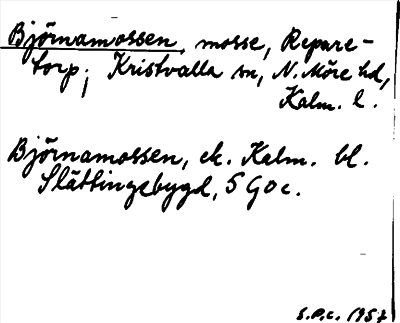 Björnamossen, mosse, Repare-
torp; Kristvalla sn, N. Möre hd,
Kalm. l.
Björnamossen, ek. Kalm. bl.
Slättingebygd, 5 G 0 c.
S.P.C. 1957